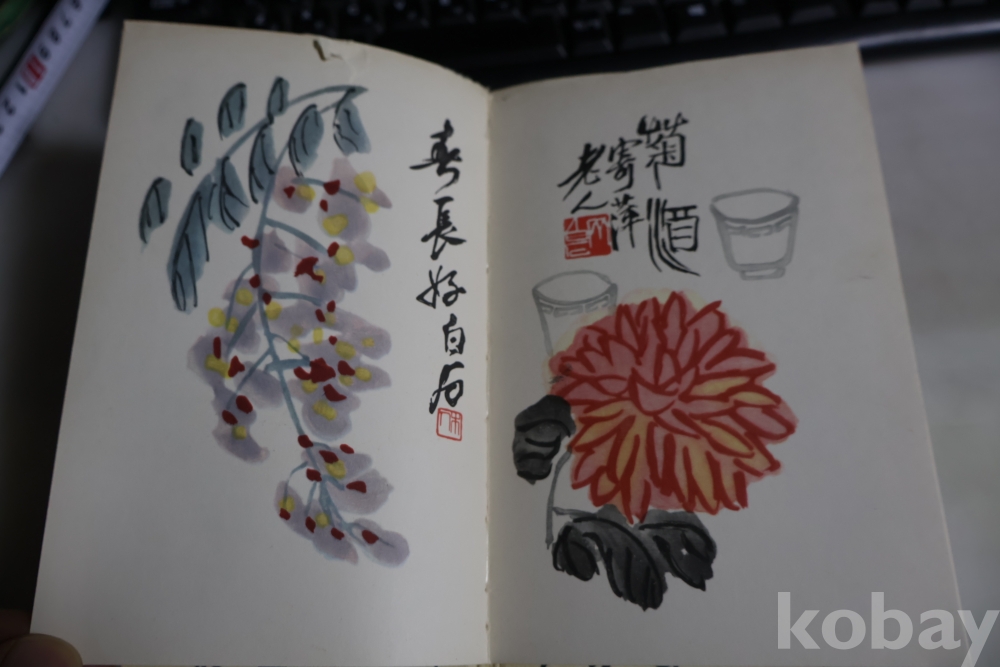 春長好白石
菊酒
寄萍
老人
kobay